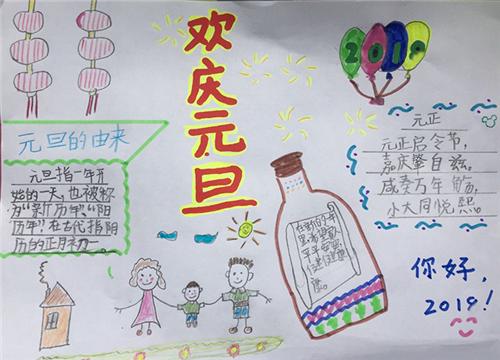 欢庆元旦
2019
元旦的由来
元旦指一年开
始的一天,也被称
为“新历年”“阳
历年”在古代指阴
历的正月初一
元正
元正启令节,
嘉庆肇自兹,
咸奏万年觞,
小大同悦熙。
你好,
2019!